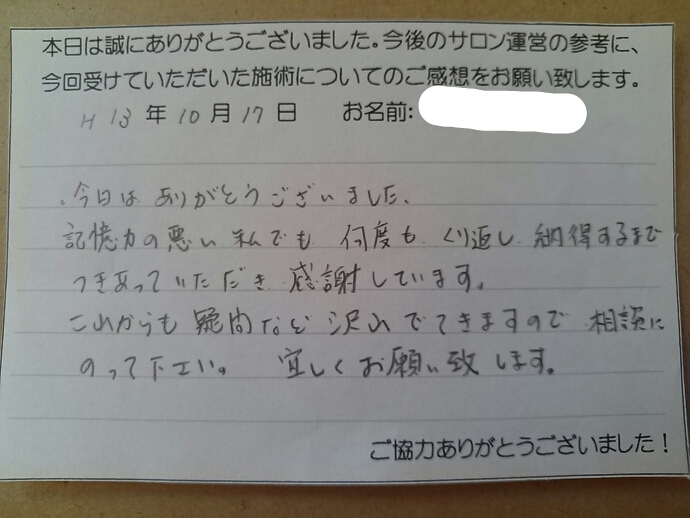 本日は誠にありがとうございました。今後のサロン運営の参考に、
今回受けていただいた施術についてのご感想をお願い致します。
H 13 年 10 月 17 日 お名前:
今日は ありがとうございました。
記憶力の悪い私でも 何度も くり返し 納得するまで
つきあっていただき 感謝しています。
これからも 疑問など 沢山 でてきますので 相談に
のって下さい。 宜しくお願い致します。
ご協力ありがとうございました!